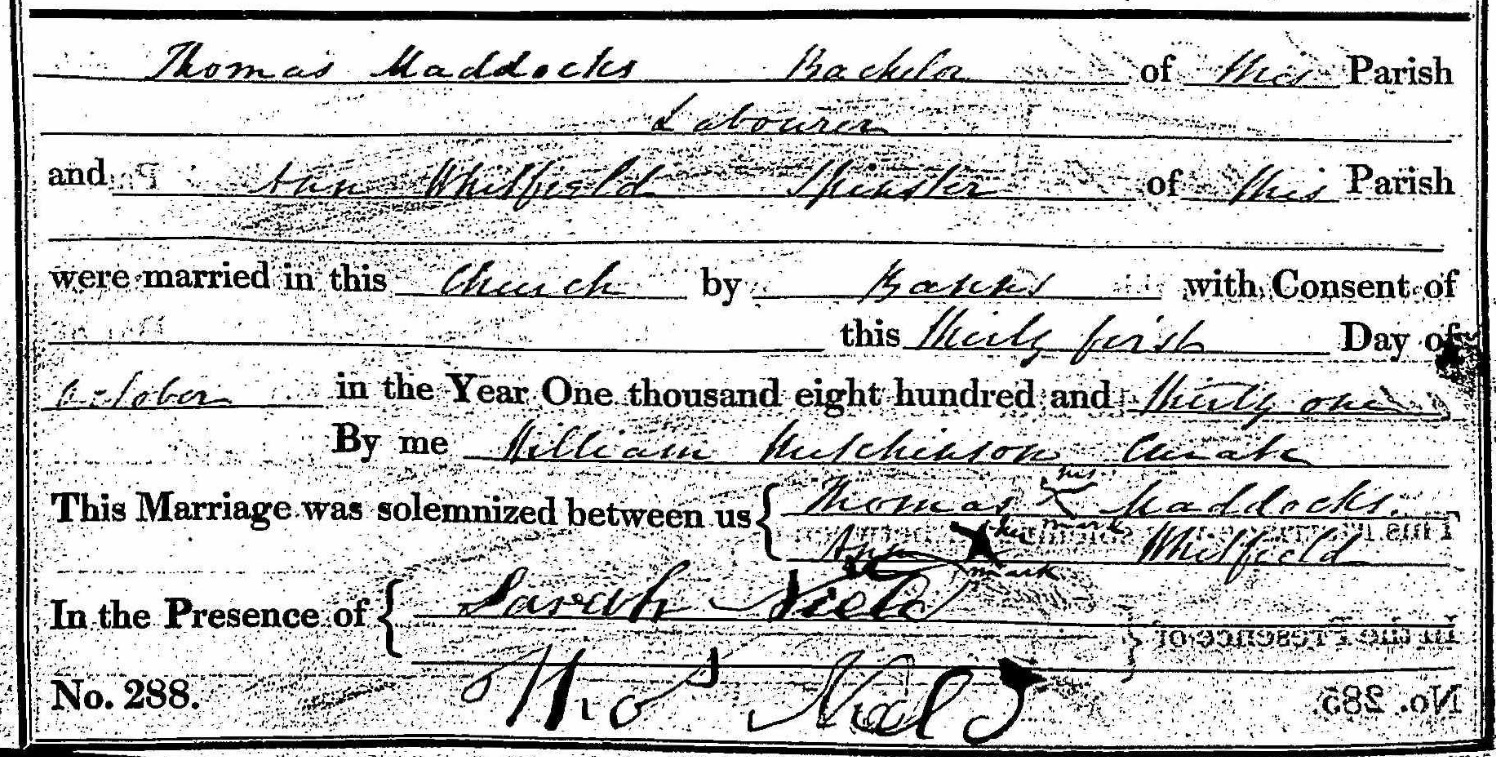 Thomas Maddocks Bachelor of this Parish
Labourer
and Ann Whitfield Spinster of this Parish
were married in this Church by Banns with Consent of
this thirty first Day of
October in the Year One thousand eight hundred and thirty one
By me William Hutchinson Curate
This Marriage was solemnized between us { Thomas X his mark Maddocks.
Ann X her mark Whitfield
In the Presence of { Sarah Nield
Thos Nield
No. 288.
In the Presence of
No. 285.